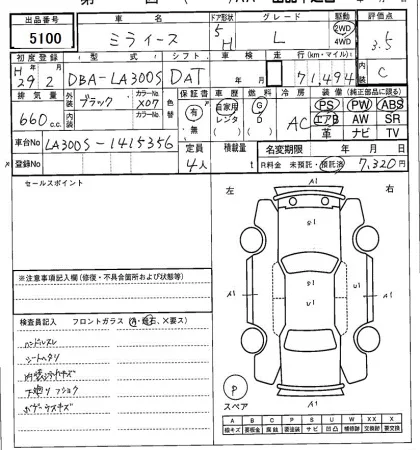 出品番号 車名 ドア形状 グレード 駆動 評価点
5100 ミライース 5 H L 2WD 4WD 3.5
初度登録 型式 シフト 車検 走行(km・マイル) 内装
H 29年 2月 DBA-LA300S DAT 年 月 71,494 C
排気量 外装色 ブラック カラーNo. X07 色替 保証書 車歴 燃料 冷房 装備(純正部品に限る)
660c.c. 内装色 カラーNo. 有・無 自家用 レンタ G D AC PS PW ABS
エアB AW SR
革 ナビ TV
車台No LA300S-1415356 定員 積載量 名変期限 年 月 日
登録No 4人 t R料金 未預託・預託済 7,320円
セールスポイント
左 右
A1
G1
U1
U1
A1 A1
A1
※注意事項記入欄(修復・不具合箇所および状態等)
検査員記入 フロントガラス(A・飛石、X要ス)
ハンドルスレ
シートヘタリ
内装汚れキズ
下廻りフショク
ボデーウスキズ
P
スペア
A B C P S U W XX X
線キズ 要板金 腐蝕 要塗装 サビ 凹凸 補修跡 交換跡 要交換